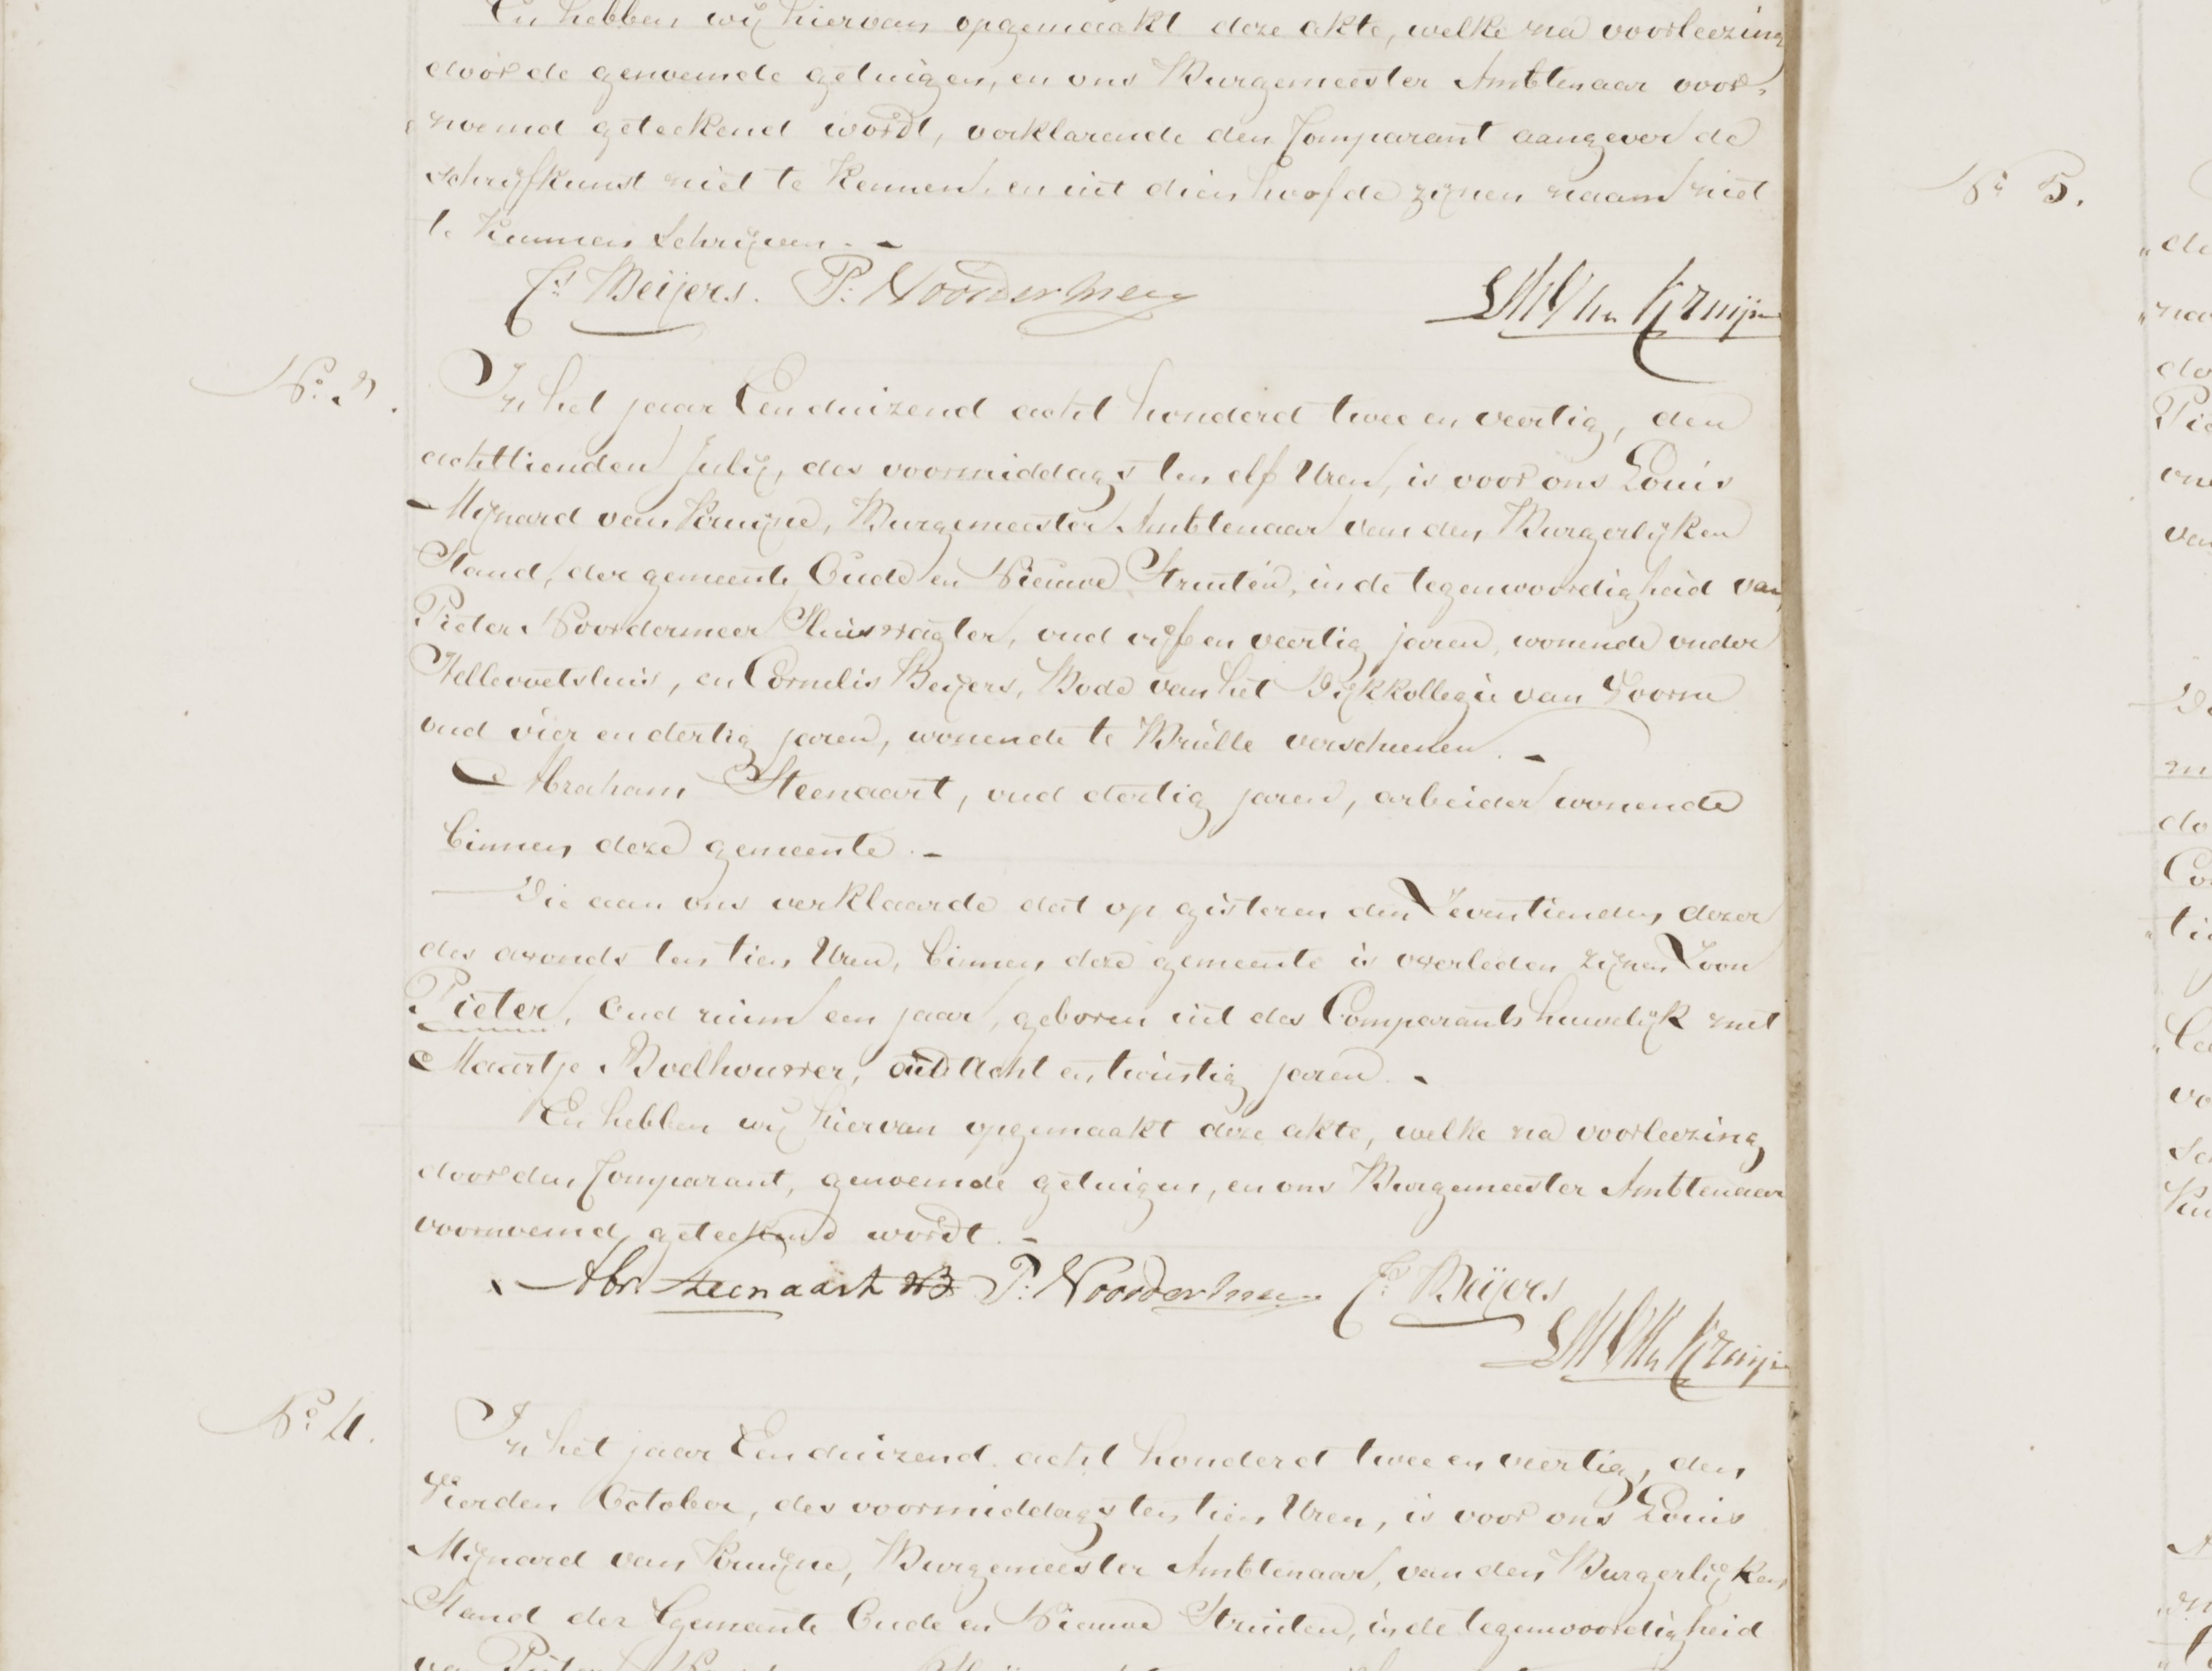 En hebben wij hiervan opgemaakt deze akte, welke na voorleezing
door de genoemde getuigen, en ons Burgemeester Ambtenaar voor-
noemd geteekend wordt, verklarende den Comparant aangever de
schrijfkunst niet te kennen, en uit dien hoofde zijnen naam niet
te kunnen schrijven.-
Cs. Meijers. P: Noordermeer
LM Van Kruijne
No. 3.
In het jaar Eenduizend acht honderd twee en veertig, den
achttienden Julij, des voormiddags ten elf Uren, is voor ons Louis
Mijnard van Kruijne, Burgemeester Ambtenaar van den Burgerlijken
Stand, der gemeente Oude en Nieuwe Struiten, in de tegenwoordigheid van
Pieter Noordermeer Sluiswagter, oud vijf en veertig jaren, wonende onder
Hellevoetsluis, en Cornelis Beijers, Bode van het Dijkkollegie van Voorne
oud vier en dertig jaren, wonende te Brielle verschenen.-
Abraham Steenaart, oud dertig jaren, arbeider wonende
binnen deze gemeente.-
Die aan ons verklaarde dat op gisteren den Zeventienden dezer
des avonds ten tien Uren, binnen deze gemeente is overleden zijnen Zoon
Pieter, Oud ruim een jaar, geboren uit des Comparants huwelijk met
Maartje Boelhouwer, oud Acht en twintig jaren.-
En hebben wij hiervan opgemaakt deze akte, welke na voorleezing
door den Comparant, genoemde getuigen, en ons Burgemeester Ambtenaar
voornoemd geteekend wordt.-
Abr. Steenaart P: Noordermeer Cs. Beijers
LM Van Kruijne
No. 4.
In het jaar Eenduizend acht honderd twee en veertig, den
Vierden October, des voormiddags ten tien Uren, is voor ons Louis
Mijnard van Kruijne, Burgemeester Ambtenaar, van den Burgerlijken
Stand der Gemeente Oude en Nieuwe Struiten, in de tegenwoordigheid
No. 5.